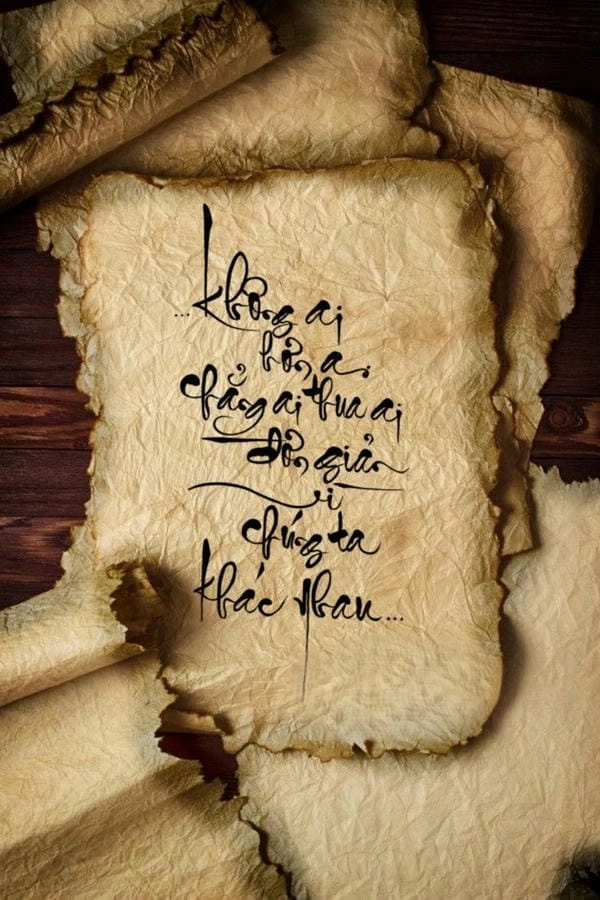 ...Không ai
hơn ai
chẳng ai thua ai
đơn giản
vì
chúng ta
khác nhau...